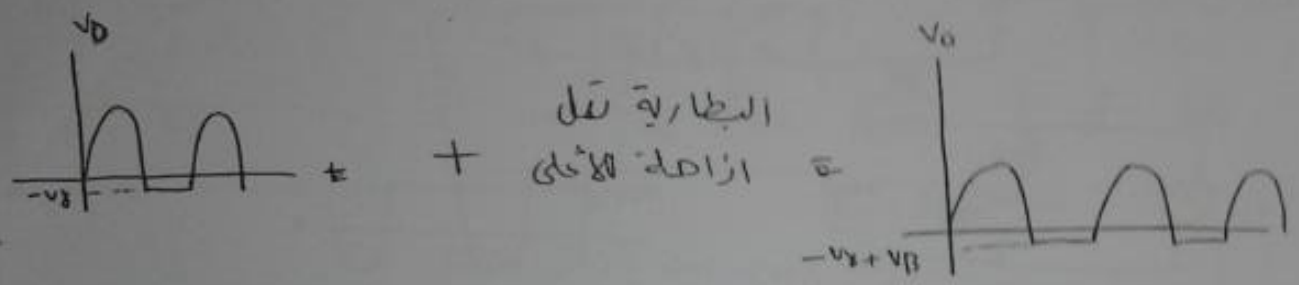 VD
-Vγ
t
+
البطارية تمل
ازاحة للأعلى
=
Vo
-Vγ + VB